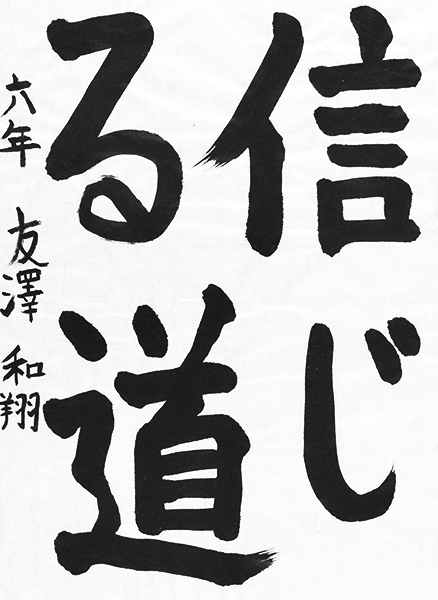 信じ
る道
六年 友澤 和翔